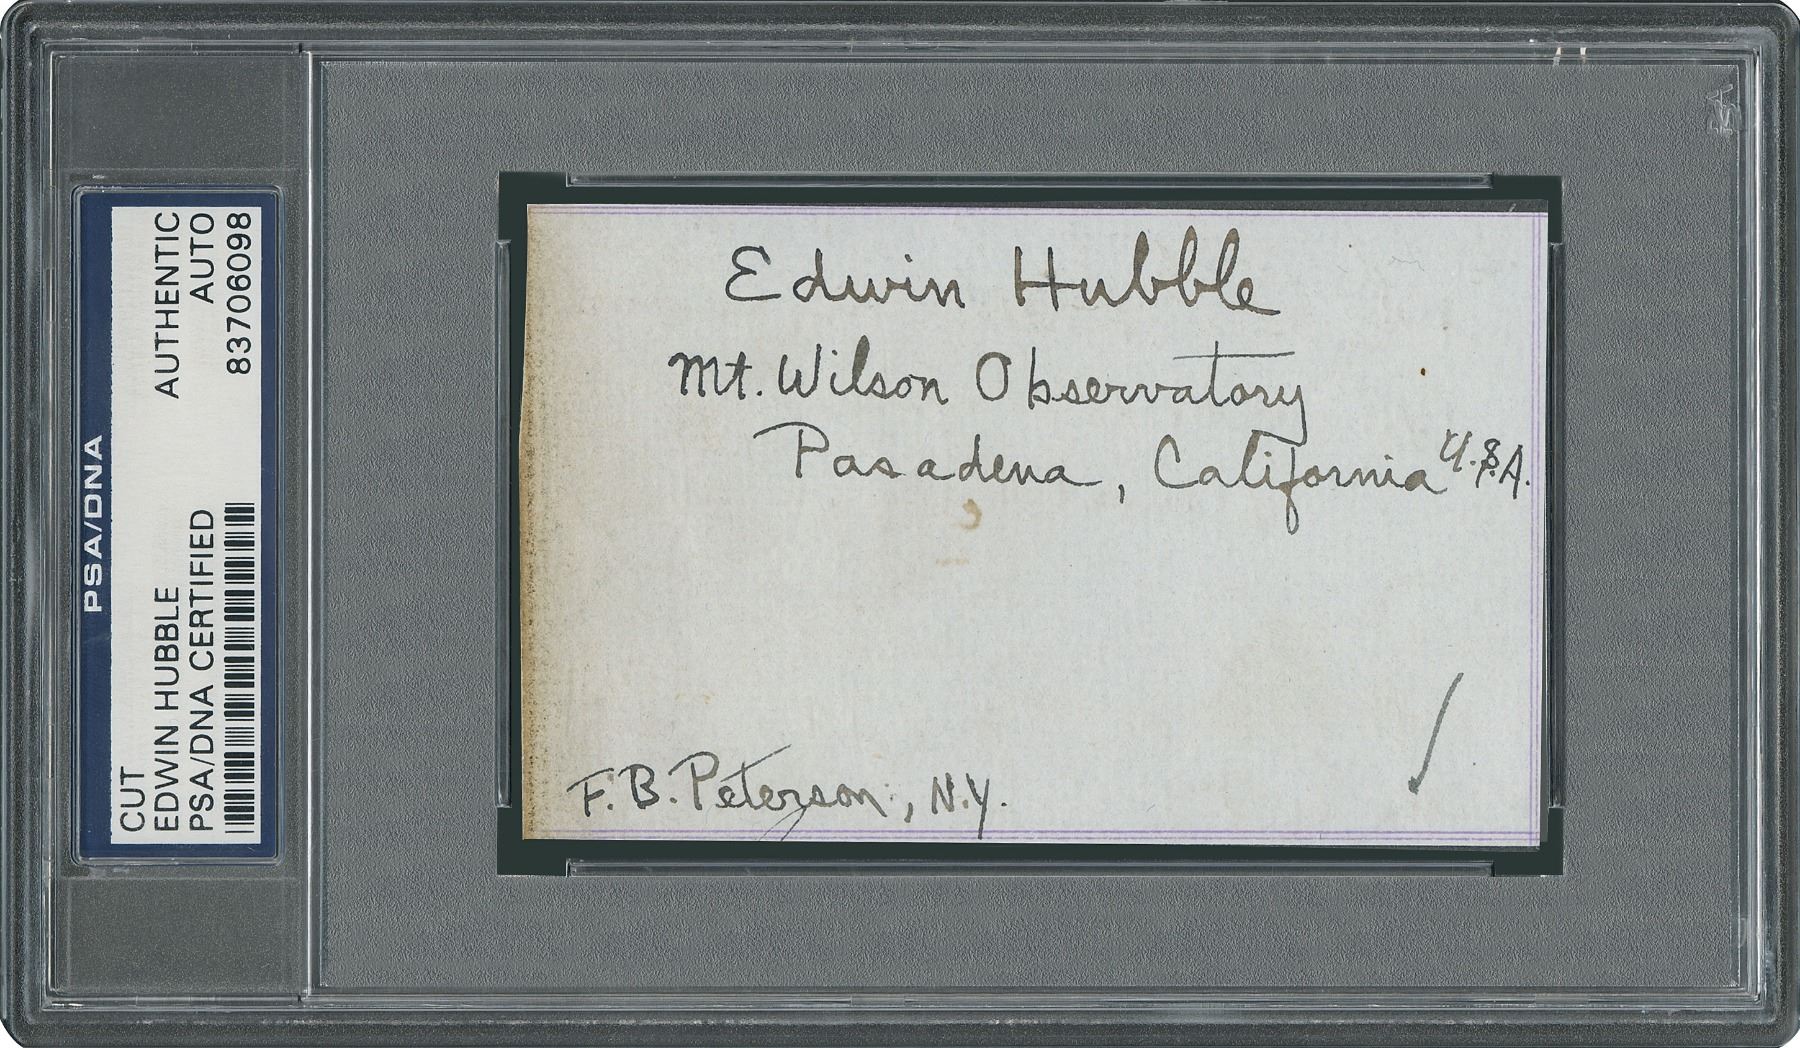 PSA/DNA
CUT AUTHENTIC
EDWIN HUBBLE AUTO
PSA/DNA CERTIFIED 83706098
Edwin Hubble
Mt. Wilson Observatory
Pasadena, California U.S.A.
F. B. Peterson, N.Y.
PSA